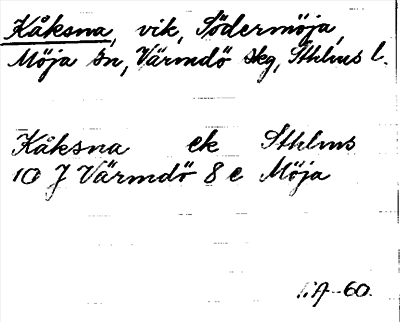 Kåksna, vik, Södermöja,
Möja sn, Värmdö skg, Sthlms l.
Kåksna ek Sthlms
10 J Värmdö 8 e Möja
A-60